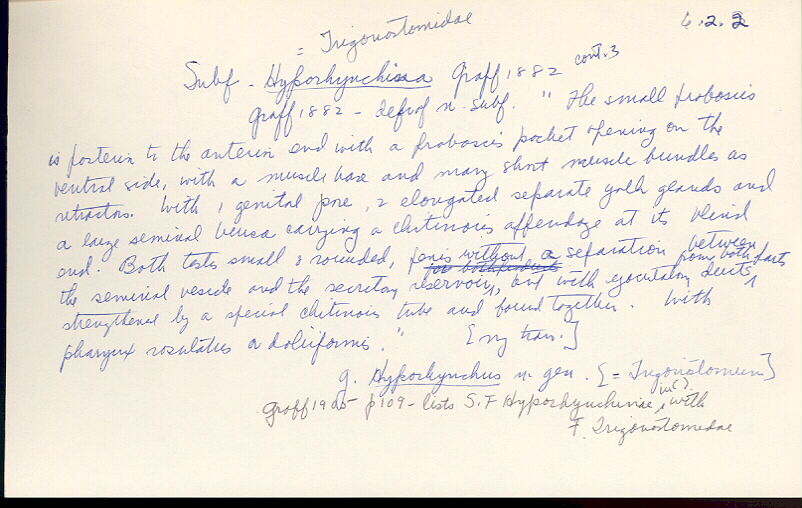 6.2.2
= Trigonostomidae
Subf - Hyporhynchissa Graff 1882 cont. 3
Graff 1882 - def. of n. Subf. " The small proboscis
is posterin to the anterin end with a proboscis pocket opening on the
ventral side, with a muscle base and many short muscle bundles as
retractors. With 1 genital pore, 2 elongated separate yolk glands and
a large seminal bursa carrying a chitinous appendage at its blind
end. Both testes small & rounded, penes without a separation between
the seminal vesicle and the secretory reservoir, but with ejaculatory ducts from both parts
strengthened by a special chitinous tube and bound together. With
pharynx rosulatus or doliiformis. " [my trans.]
g. Hyporhynchus n. gen. [= Trigonostomum]
Graff 1905 p 109 - lists S.F Hyporhynchinae, in () with
F. Trigonostomidae